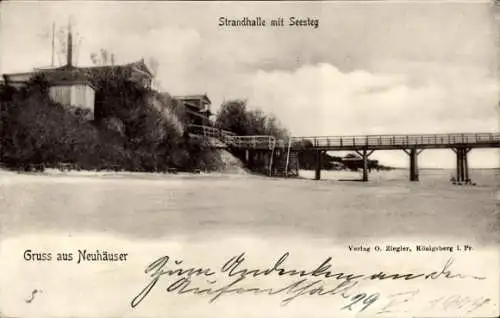 Strandhalle mit Seesteg
Gruss aus Neuhäuser
Verlag O. Ziegler, Königsberg i. Pr.
Zum Andenken an d.
Aufenthalt 29